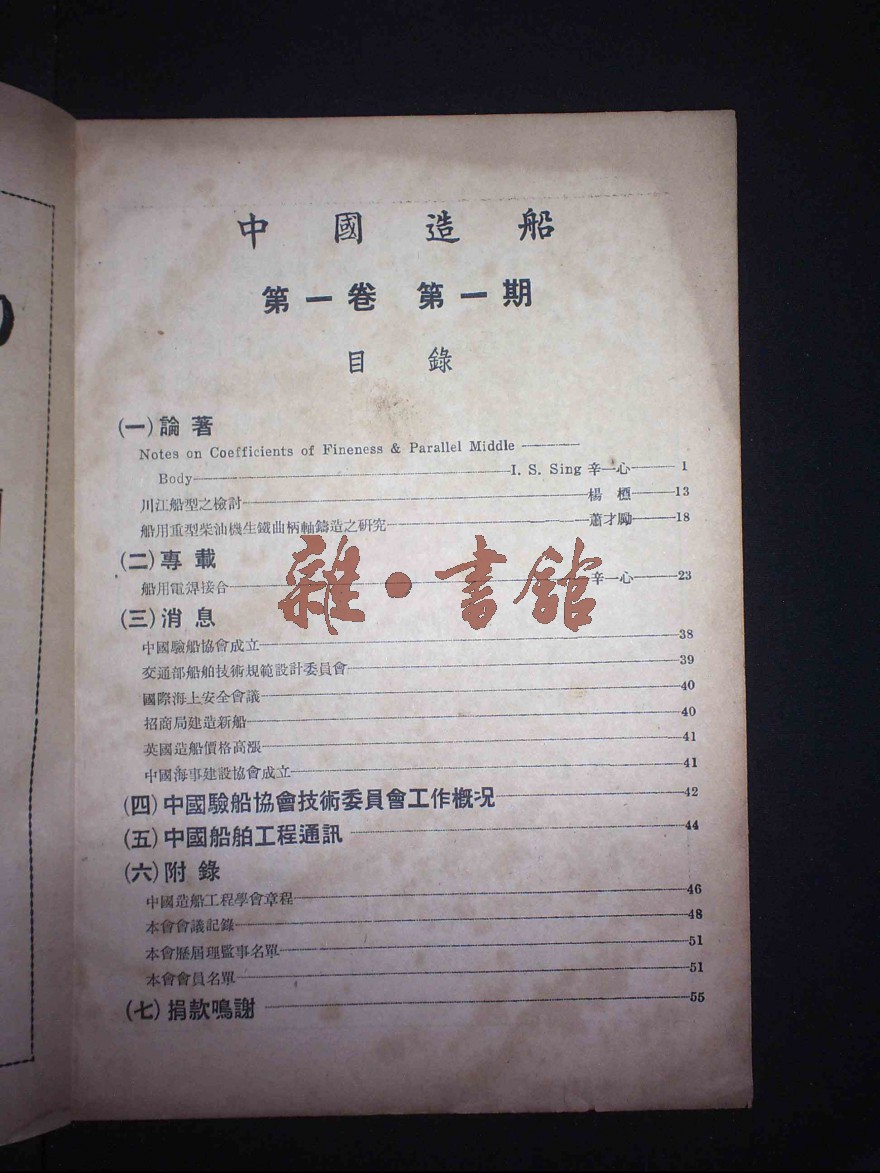 中國造船
第一卷 第一期
目錄
(一)論著
Notes on Coefficients of Fineness & Parallel Middle
Body I. S. Sing 辛一心 1
川江船型之檢討 楊 13
船用重型柴油機生鐵曲柄軸鑄造之研究 蕭才勵 18
(二)專載
船用電焊接合 辛一心 23
(三)消息
中國驗船協會成立 38
交通部船舶技術規範設計委員會 39
國際海上安全會議 40
招商局建造新船 40
英國造船價格高漲 41
中國海事建設協會成立 41
(四)中國驗船協會技術委員會工作概况 42
(五)中國船舶工程通訊 44
(六)附錄
中國造船工程學會章程 46
本會會議記錄 48
本會歷屆理監事名單 51
本會會員名單 51
(七)捐款鳴謝 55
雜·書館